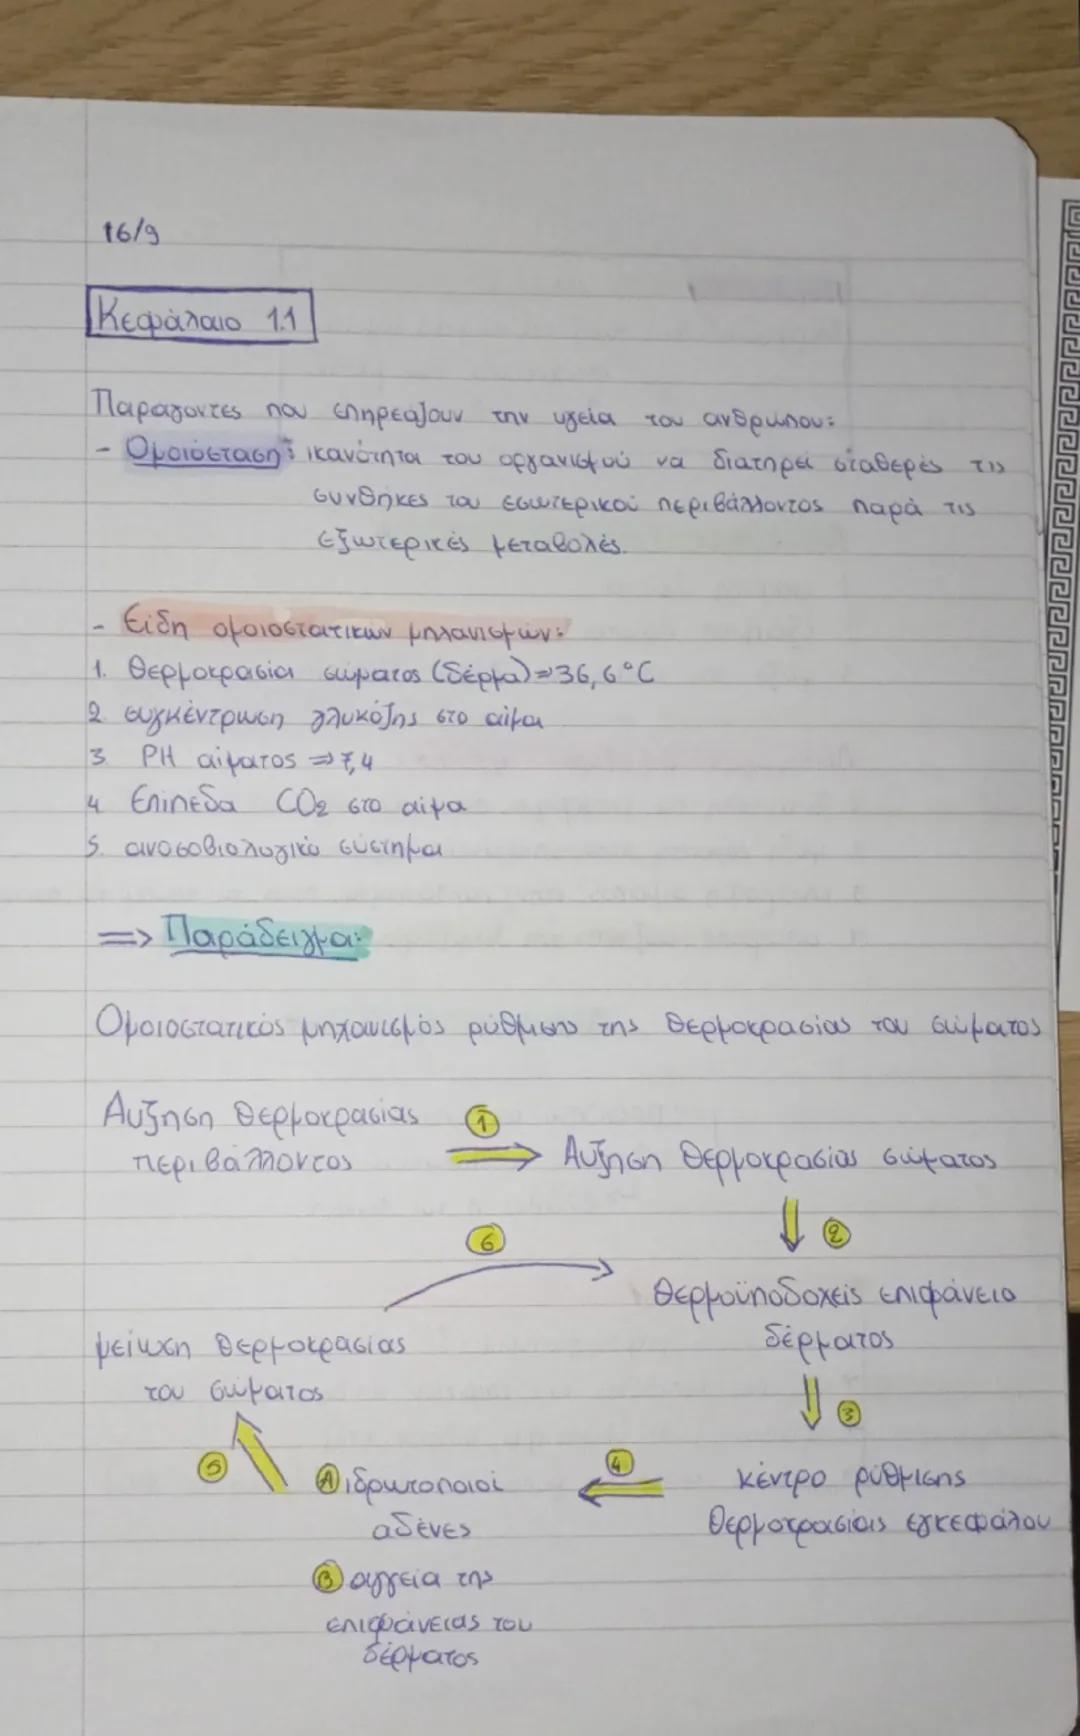 16/9
Κεφάλαιο 1.1
Παράγοντες που επηρεάζουν την υγεία του ανθρώπου:
- Ομοιόσταση: ικανότητα του οργανισμού να διατηρεί σταθερές τις
συνθήκες του εσωτερικού περιβάλλοντος παρά τις
εξωτερικές μεταβολές.
- Είδη ομοιοστατικών μηχανισμών:
1. Θερμοκρασία σώματος (δέρμα) ⇒ 36,6°C
2. συγκέντρωση γλυκόζης στο αίμα
3. PH αίματος ⇒ 7,4
4. Επίπεδα CO2 στο αίμα
5. ανοσοβιολογικό σύστημα
=> Παράδειγμα:
Ομοιοστατικός μηχανισμός ρύθμισης της θερμοκρασίας του σώματος
Αύξηση θερμοκρασίας
περιβάλλοντος
1
Αύξηση θερμοκρασίας σώματος
2
Θερμοϋποδοχείς επιφάνεια
δέρματος
3
κέντρο ρύθμισης
θερμοκρασίας εγκεφάλου
4
Α ιδρωτοποιοί
αδένες
Β αγγεία της
επιφάνειας του
δέρματος
5
μείωση θερμοκρασίας
του σώματος
6